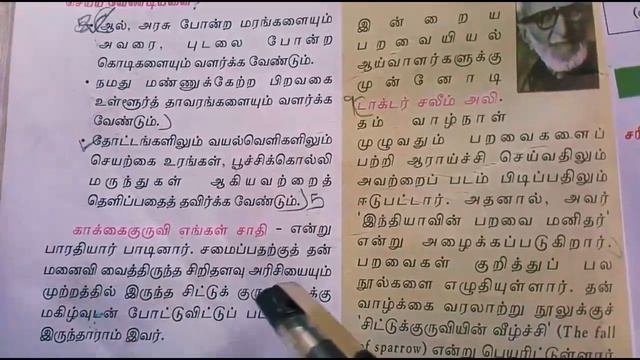 ஆல், அரசு போன்ற மரங்களையும்
அவரை, புடலை போன்ற
கொடிகளையும் வளர்க்க வேண்டும்.
• நமது மண்ணுக்கேற்ற பிறவகை
உள்ளூர்த் தாவரங்களையும் வளர்க்க
வேண்டும்.
• தோட்டங்களிலும் வயல்வெளிகளிலும்
செயற்கை உரங்கள், பூச்சிக்கொல்லி
மருந்துகள் ஆகியவற்றைத்
தெளிப்பதைத் தவிர்க்க வேண்டும். 5
காக்கைகுருவி எங்கள் சாதி - என்று
பாரதியார் பாடினார். சமைப்பதற்குத் தன்
மனைவி வைத்திருந்த சிறிதளவு அரிசியையும்
முற்றத்தில் இருந்த சிட்டுக்
மகிழ்வுடன் போட்டுவிட்டுப்
இருந்தாராம் இவர்.
இன்றைய
பறவையியல்
ஆய்வாளர்களுக்கு
முன்னோடி
டாக்டர் சலீம் அலி.
தம் வாழ்நாள்
முழுவதும் பறவைகளைப்
பற்றி ஆராய்ச்சி செய்வதிலும்
அவற்றைப் படம் பிடிப்பதிலும்
ஈடுபட்டார். அதனால், அவர்
'இந்தியாவின் பறவை மனிதர்'
என்று அழைக்கப்படுகிறார்.
பறவைகள் குறித்துப் பல
நூல்களை எழுதியுள்ளார். தன்
வாழ்க்கை வரலாற்று நூலுக்குச்
'சிட்டுக்குருவியின் வீழ்ச்சி' (The fall
of sparrow) என்று பெயரிட்டுள்ளார்